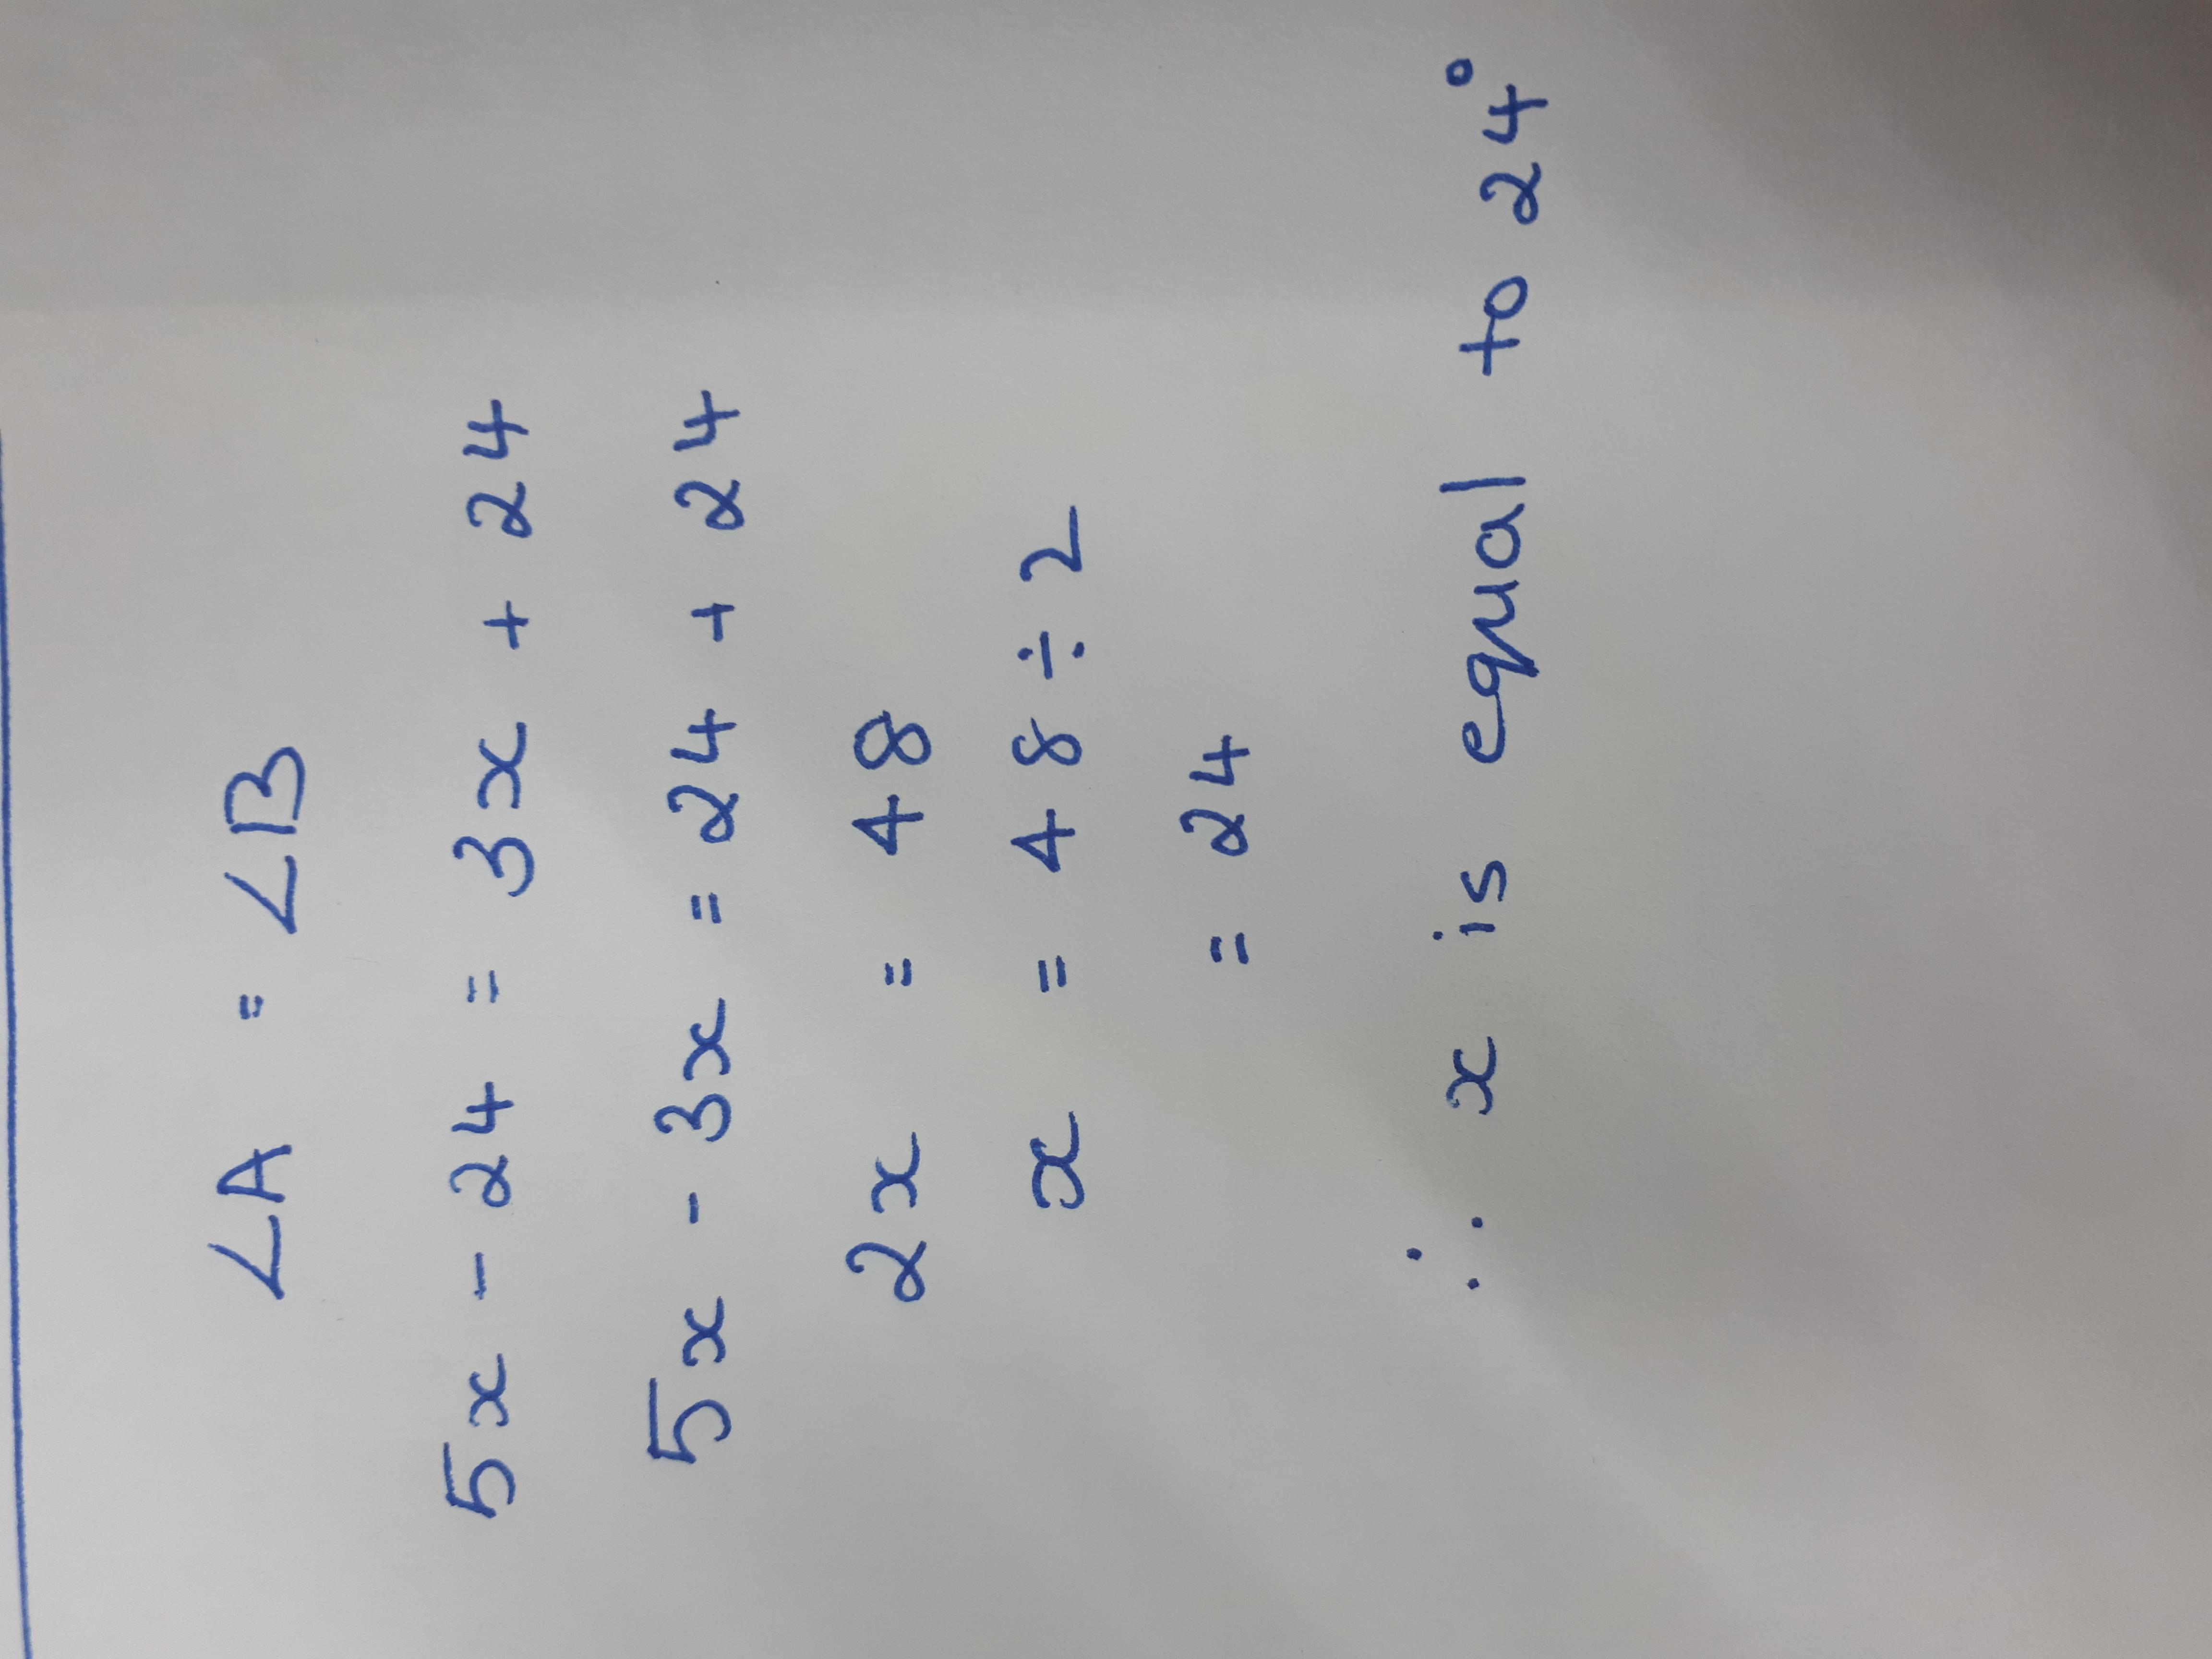 ∠A = ∠B
5x - 24 = 3x + 24
5x - 3x = 24 + 24
2x = 48
x = 48 ÷ 2
= 24
∴ x is equal to 24°